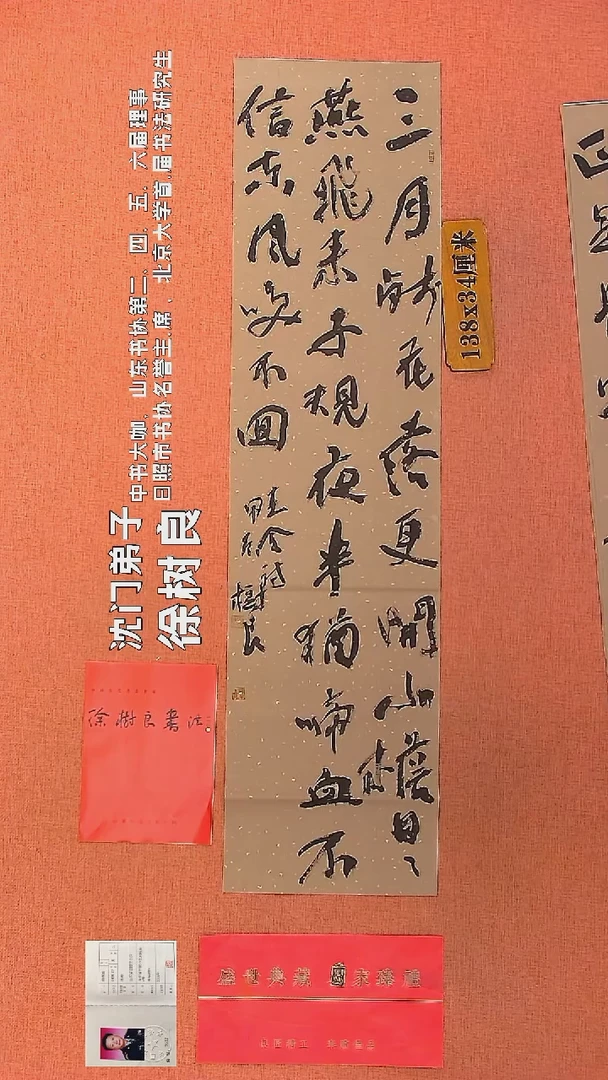 三月残花落更開小檐日〻
燕飛来子規夜半猶啼血不
信东風唤不回
樹良
138x34厘米
沈门弟子
徐树良
中书大咖、山东书协第二、四、五、六届理事
日照市书协名誉主席、北京大学首届书法研究生
徐樹良書法
盛世典藏